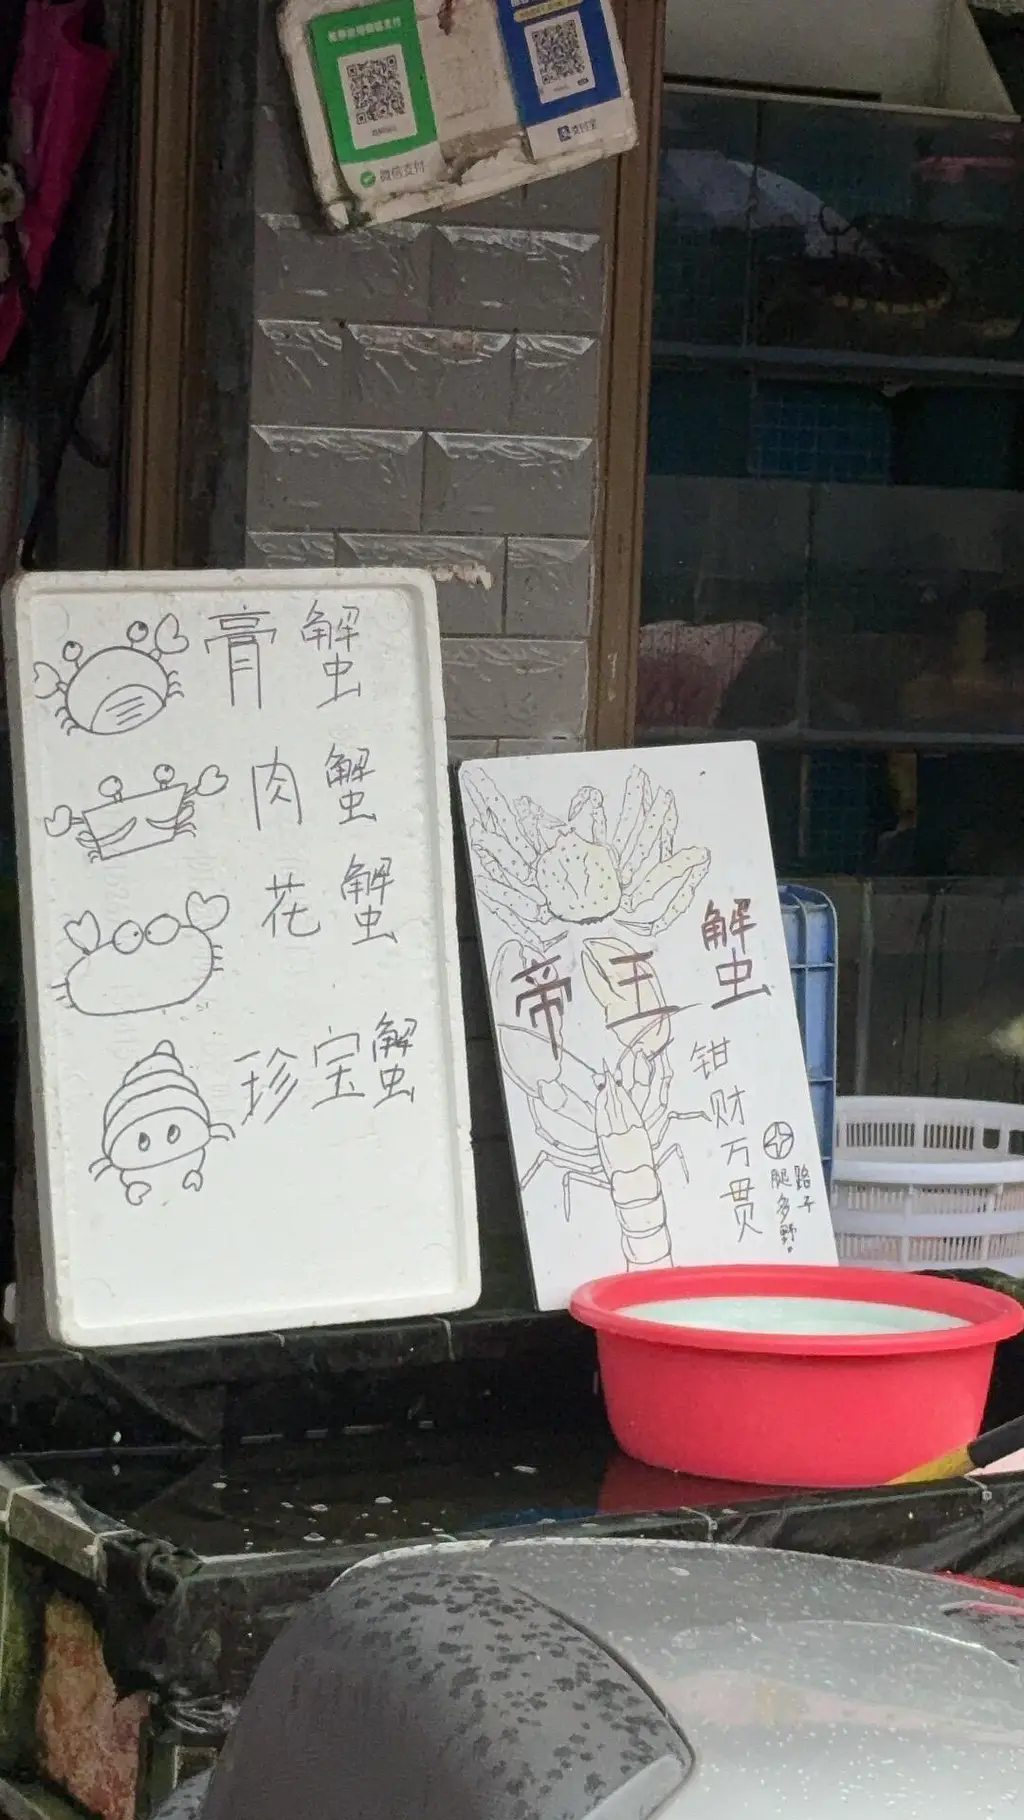 微信支付
支付宝
膏蟹
肉蟹
花蟹
珍宝蟹
帝王蟹
钳财万贯
路子
腿多野。